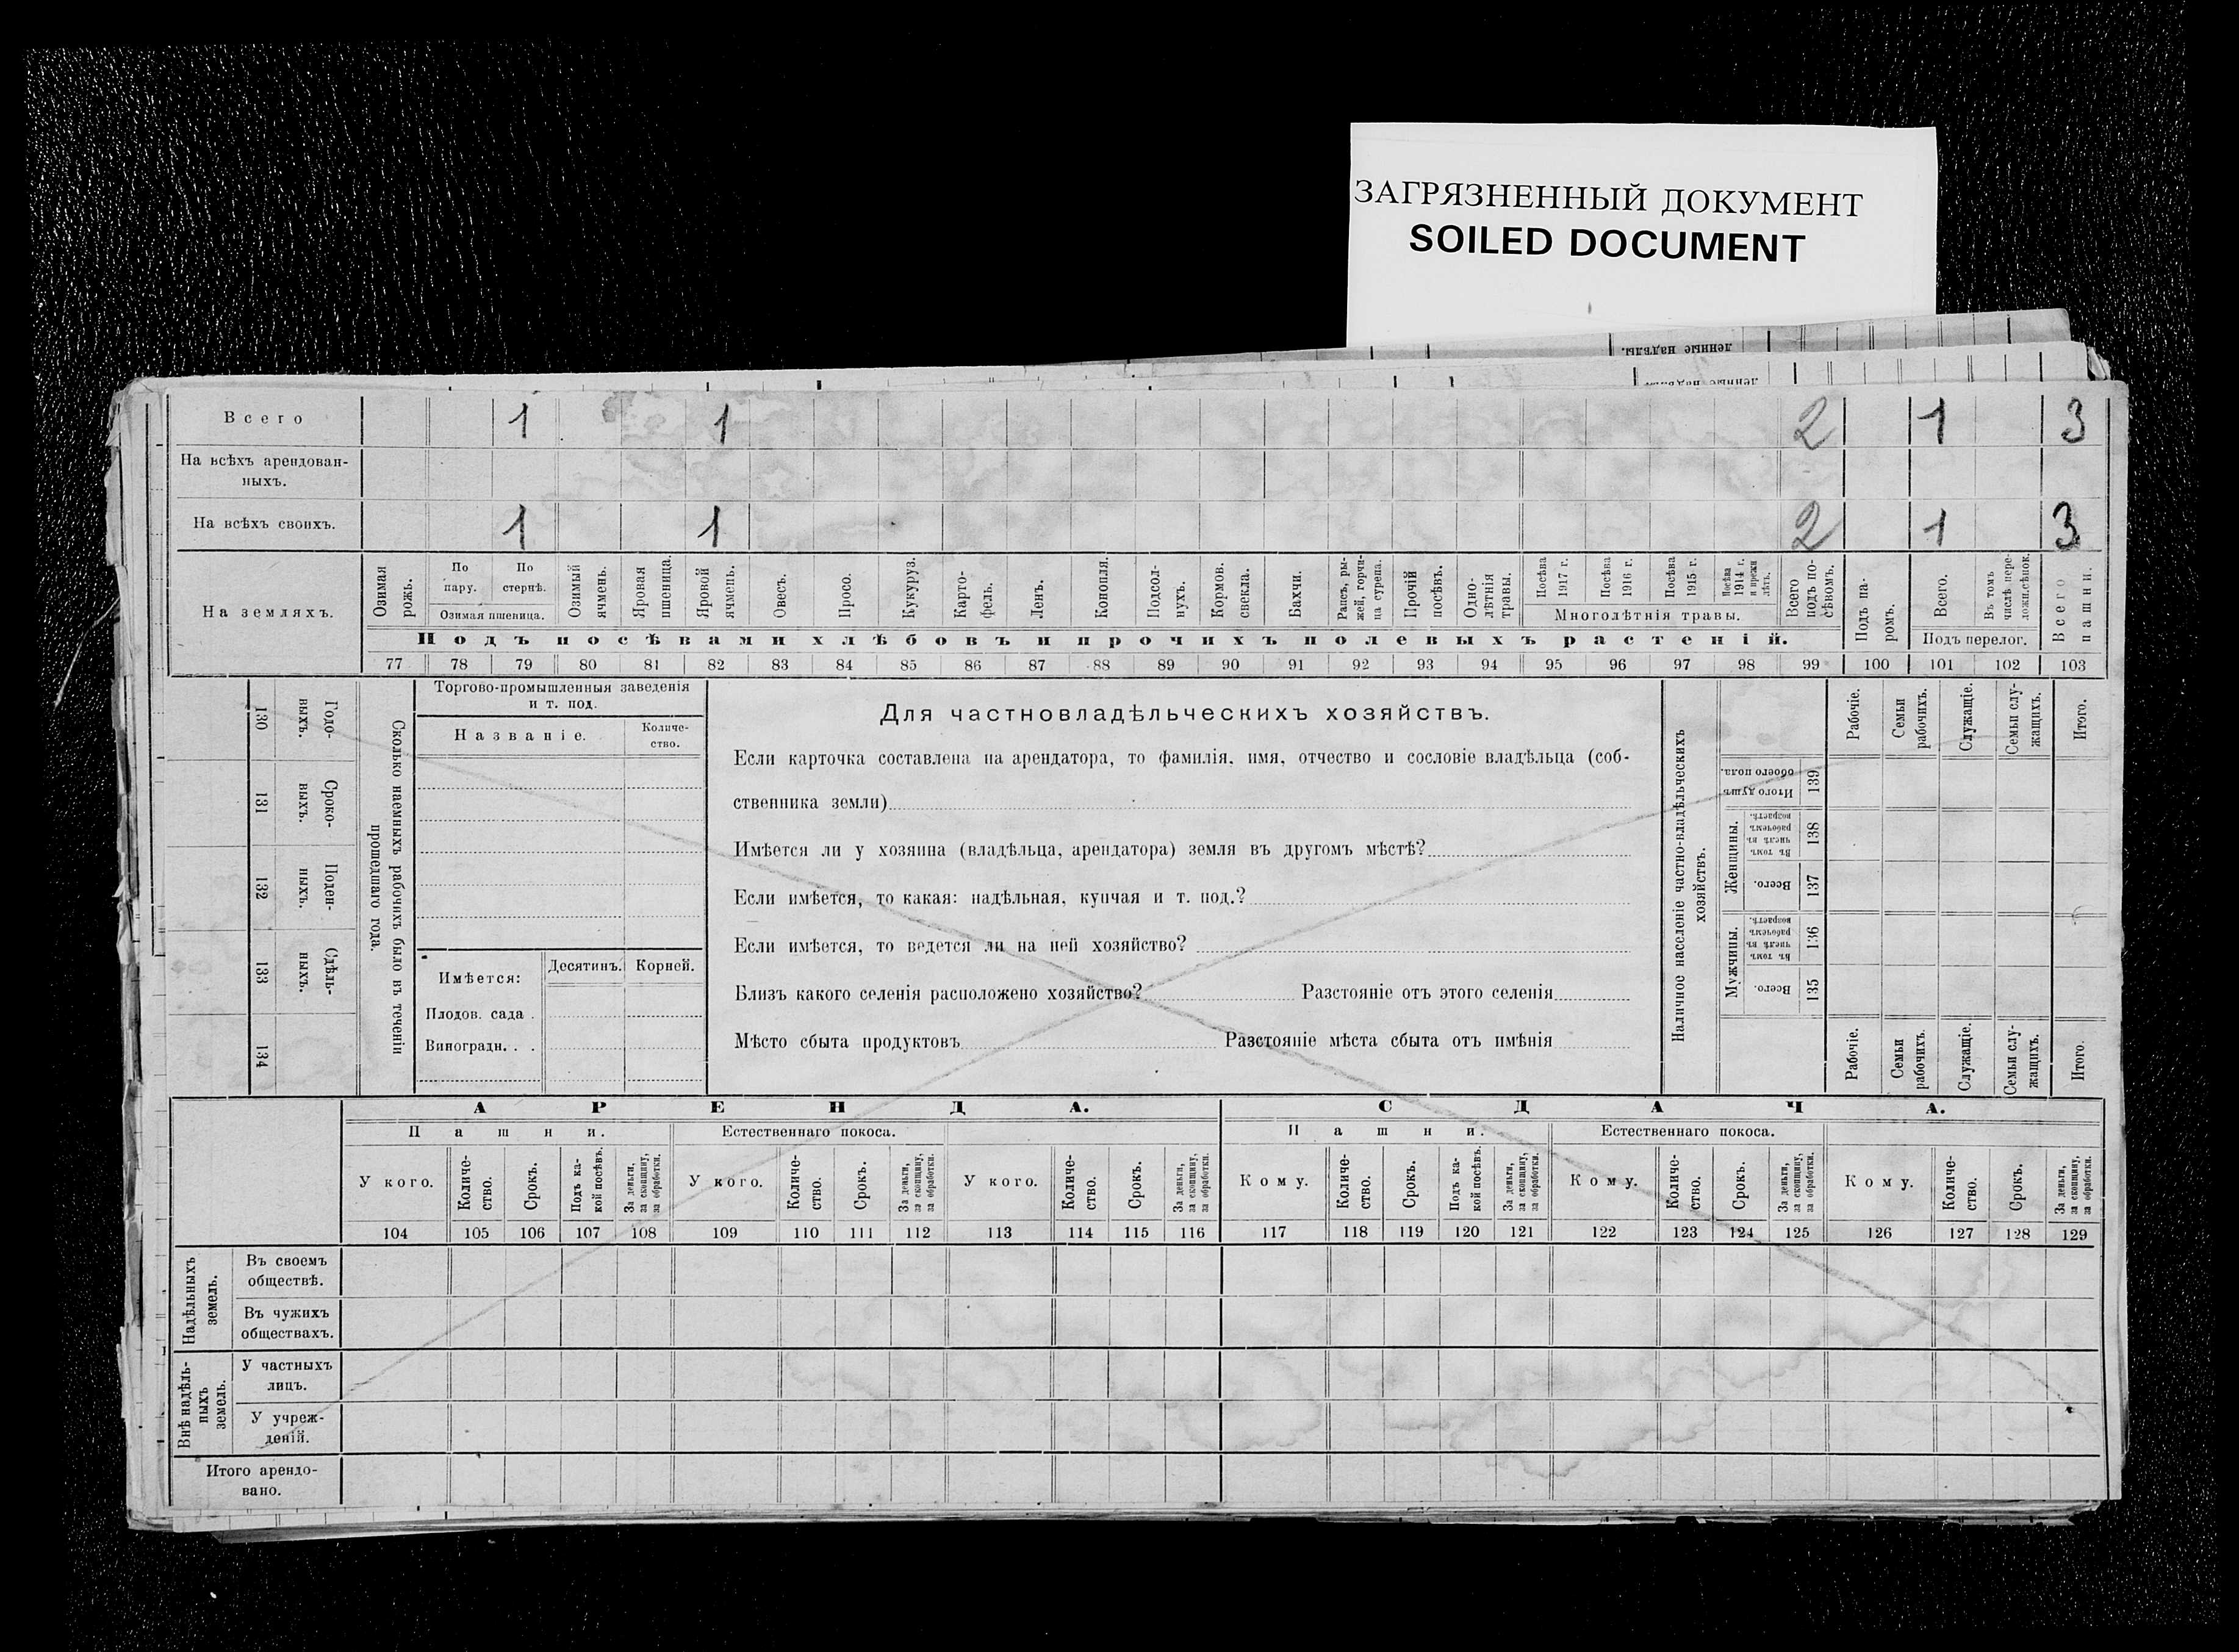 ЗАГРЯЗНЕННЫЙ ДОКУМЕНТ
SOILED DOCUMENT
ленные надѣлы.
Всего 1 1 2 1 3
На всѣхъ арендован-
ныхъ.
На всѣхъ своихъ. 1 1 2 1 3
На земляхъ.
Озимая рожь.
По пару.
По стернѣ.
Озимая пшеница.
Озимый ячмень.
Яровая пшеница.
Яровой ячмень.
Овесъ.
Просо.
Кукуруз.
Карто-
фель.
Ленъ.
Конопля.
Подсол-
нухъ.
Кормов. свекла.
Бахчи.
Рапсъ, ры-
жей, горчи-
ца сурепа.
Прочій посѣвъ.
Одно-
лѣтнія травы.
Посѣва 1917 г.
Посѣва 1916 г.
Посѣва 1915 г.
Посѣва 1914 г. и прежн лѣтъ.
Многолѣтнія травы.
Всего подъ по-
сѣвомъ.
Подъ па-
ромъ.
Всего.
Въ томъ числѣ пере-
ложн.сѣнок.
Подъ перелог.
Всего пашни.
Подъ посѣвами хлѣбовъ и прочихъ полевыхъ растеній.
77 78 79 80 81 82 83 84 85 86 87 88 89 90 91 92 93 94 95 96 97 98 99 100 101 102 103
130 Годо-
выхъ.
131 Сроко-
выхъ.
132 Поден-
ныхъ.
133 Сдѣль-
ныхъ.
134
Сколько наемныхъ рабочихъ было въ теченіи
прошедшаго года.
Торгово-промышленныя заведенія
и т. под.
Названіе.
Количе-
ство.
Имѣется: Десятинъ. Корней.
Плодов. сада .
Виноградн. . .
Для частновладѣльческихъ хозяйствъ.
Если карточка составлена на арендатора, то фамилія, имя, отчество и сословіе владѣльца (соб-
ственника земли)
Имѣется ли у хозяина (владѣльца, арендатора) земля въ другомъ мѣстѣ?
Если имѣется, то какая: надѣльная, купчая и т. под.?
Если имѣется, то ведется ли на ней хозяйство?
Близъ какого селенія расположено хозяйство? Разстояніе отъ этого селенія
Мѣсто сбыта продуктовъ Разстояніе мѣста сбыта отъ имѣнія
Наличное населеніе частно-владѣльческихъ
хозяйствъ.
Итого душъ обоего пола. 139
Женщины.
Въ томъ числѣ въ рабочемъ возрастѣ. 138
Всего. 137
Мужчины.
Въ томъ числѣ въ рабочемъ возрастѣ. 136
Всего. 135
Рабочіе.
Семьи рабочихъ.
Служащіе.
Семьи слу-
жащихъ.
Итого.
Рабочіе.
Семьи рабочихъ.
Служащіе.
Семьи слу-
жащихъ.
Итого.
АРЕНДА. СДАЧА.
Пашни. Естественнаго покоса. Пашни. Естественнаго покоса.
У кого.
Количе-
ство.
Срокъ.
Подъ ка-
кой посѣвъ.
За деньги, за скопщину, за обработки.
У кого.
Количе-
ство.
Срокъ.
За деньги, за скопщину, за обработки.
У кого.
Количе-
ство.
Срокъ.
За деньги, за скопщину, за обработки.
Кому.
Количе-
ство.
Срокъ.
Подъ ка-
кой посѣвъ.
За деньги, за скопщину, за обработки.
Кому.
Количе-
ство.
Срокъ.
За деньги, за скопщину, за обработки.
Кому.
Количе-
ство.
Срокъ.
За деньги, за скопщину, за обработки.
104 105 106 107 108 109 110 111 112 113 114 115 116 117 118 119 120 121 122 123 124 125 126 127 128 129
Надѣльныхъ земель.
Въ своемъ
обществѣ.
Въ чужихъ
обществахъ.
Внѣ надѣль-
ныхъ земель.
У частныхъ
лицъ.
У учреж-
деній.
Итого арендо-
вано.